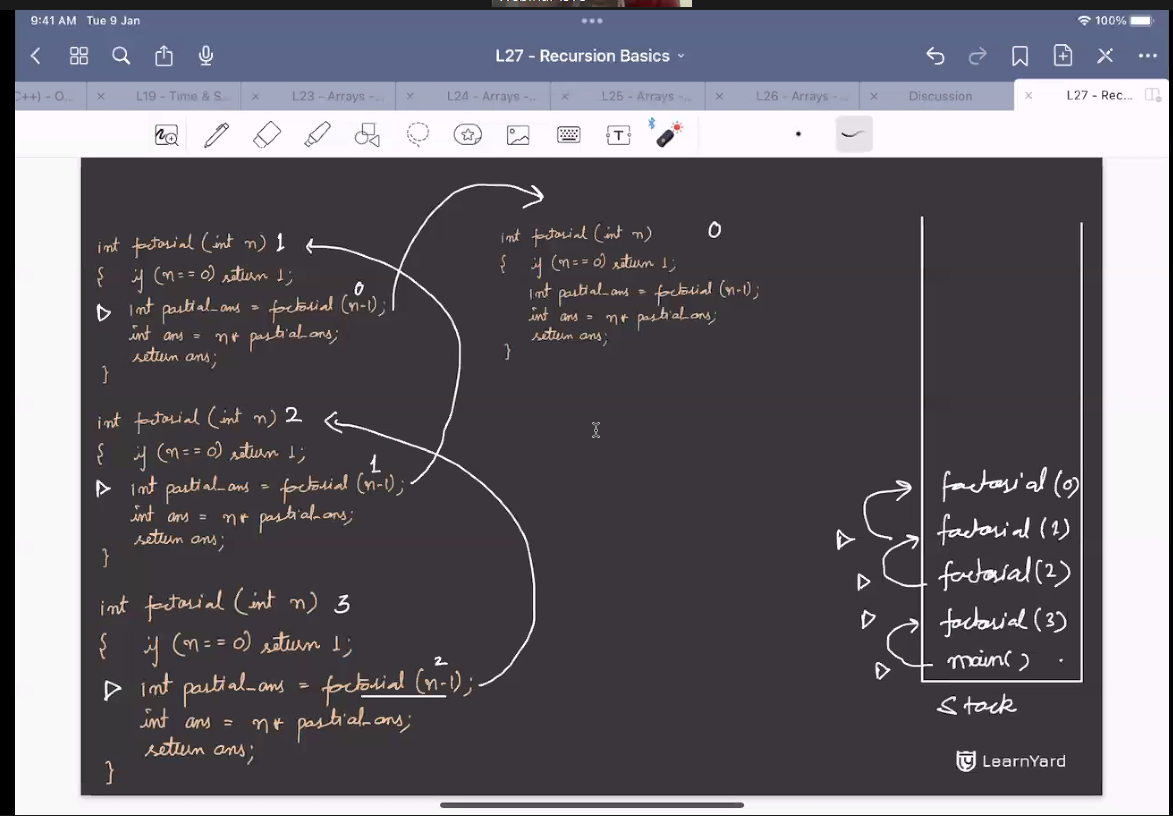 Webinar
9:41 AM Tue 9 Jan
100%
L27 - Recursion Basics
C++) - O...
L19 - Time & S...
L23 - Arrays -...
L24 - Arrays -...
L25 - Arrays -...
L26 - Arrays -...
Discussion
L27 - Rec...
int factorial (int n) 1
{ if (n == 0) return 1;
0
int partial_ans = factorial (n-1);
int ans = n * partial_ans;
return ans;
}
int factorial (int n) 2
{ if (n == 0) return 1;
1
int partial_ans = factorial (n-1);
int ans = n * partial_ans;
return ans;
}
int factorial (int n) 3
{ if (n == 0) return 1;
2
int partial_ans = factorial (n-1);
int ans = n * partial_ans;
return ans;
}
int factorial (int n) 0
{ if (n == 0) return 1;
int partial_ans = factorial (n-1);
int ans = n * partial_ans;
return ans;
}
factorial (0)
factorial (1)
factorial (2)
factorial (3)
main()
Stack
LearnYard